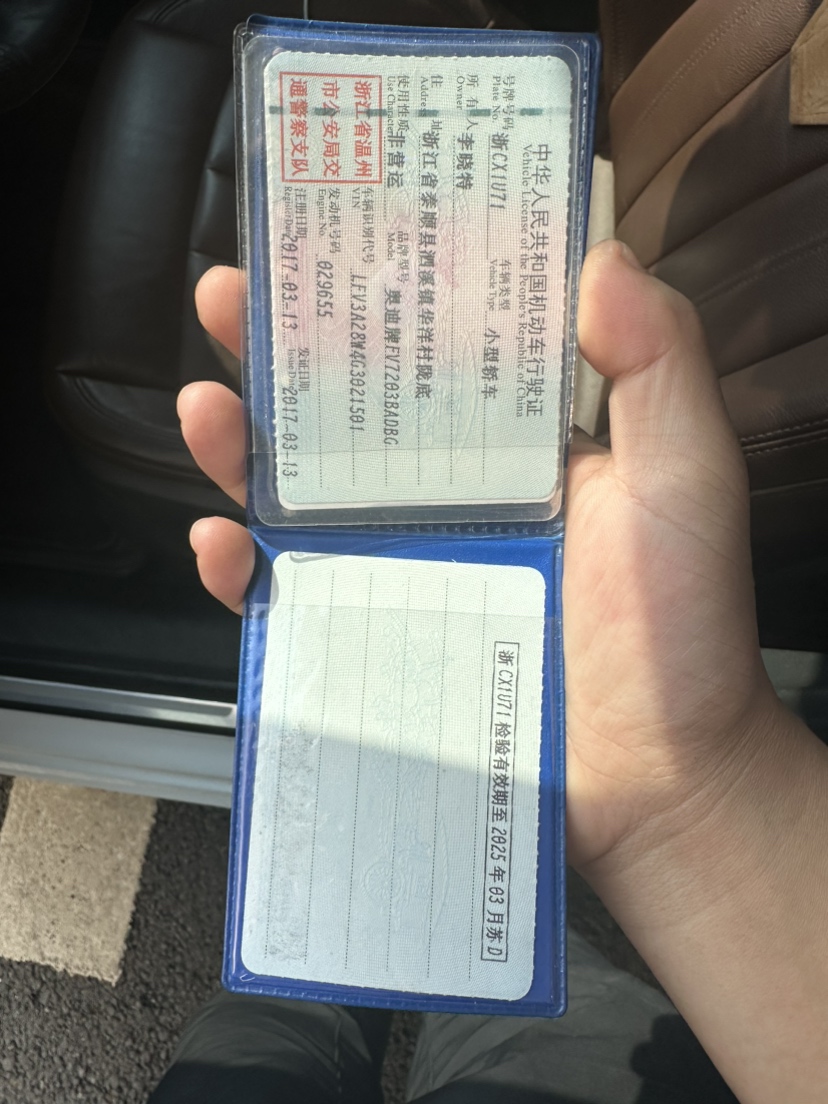 中华人民共和国机动车行驶证
Vehicle License of the People's Republic of China
号牌号码 浙CX1U71 车辆类型 小型轿车
Plate No. Vehicle Type
所有人 李晓特
Owner
住址 浙江省泰顺县泗溪镇华洋村陇底
Address
使用性质 非营运 品牌型号 奥迪牌FV7203BADBG
Use Character Model
浙江省温州
市公安局交
通警察支队
车辆识别代号 LFV3A28W4G3021501
VIN
发动机号码 029655
Engine No.
注册日期 2017-03-13 发证日期 2017-03-13
Register Date Issue Date
浙CX1U71 检验有效期至 2025 年 03 月苏D